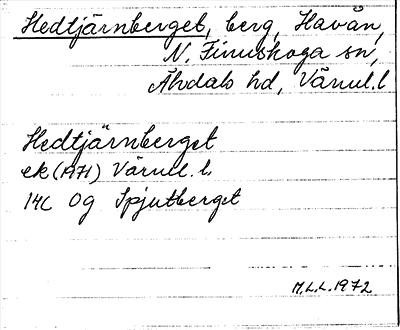 Hedtjärnberget, berg, Havån,
N. Finnskoga sn,
Älvdals hd, Värml. l
Hedtjärnberget
ek (1971) Värml. l.
14C Og Spjutberget
M.L.L. 1972